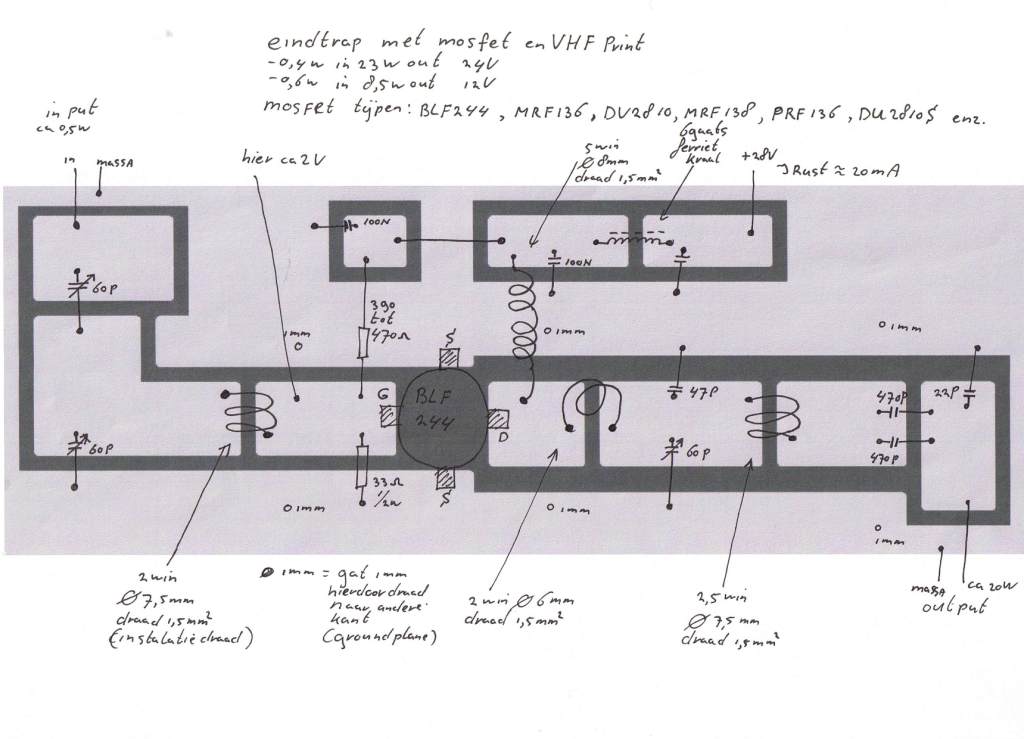 eindtrap met mosfet en VHF Print
-0,4w in 23w out 24V
-0,6w in 8,5w out 12V
mosfet tijpen: BLF244, MRF136, DV2810, MRF138, PRF136, DU2810S enz.
in put
ca 0,5w
in
massA
hier ca 2V
5win
Ø 8mm
draad 1,5mm²
6gaats
ferriet
kraal
+28V
IRust ≈ 20mA
100N
100N
60P
390
tot
470Ω
1mm
O 1mm
O 1mm
S
G
BLF
244
D
S
47P
22P
470P
470P
60P
60P
33Ω
1/2w
O 1mm
O 1mm
O
1mm
2win
Ø 7,5mm
draad 1,5mm²
(instalatie draad)
1mm = gat 1mm
hierdoor draad
naar andere
kant
(groundplane)
2win Ø 6mm
draad 1,5mm²
2,5win
Ø 7,5mm
draad 1,5mm²
massA
ca 20W
output